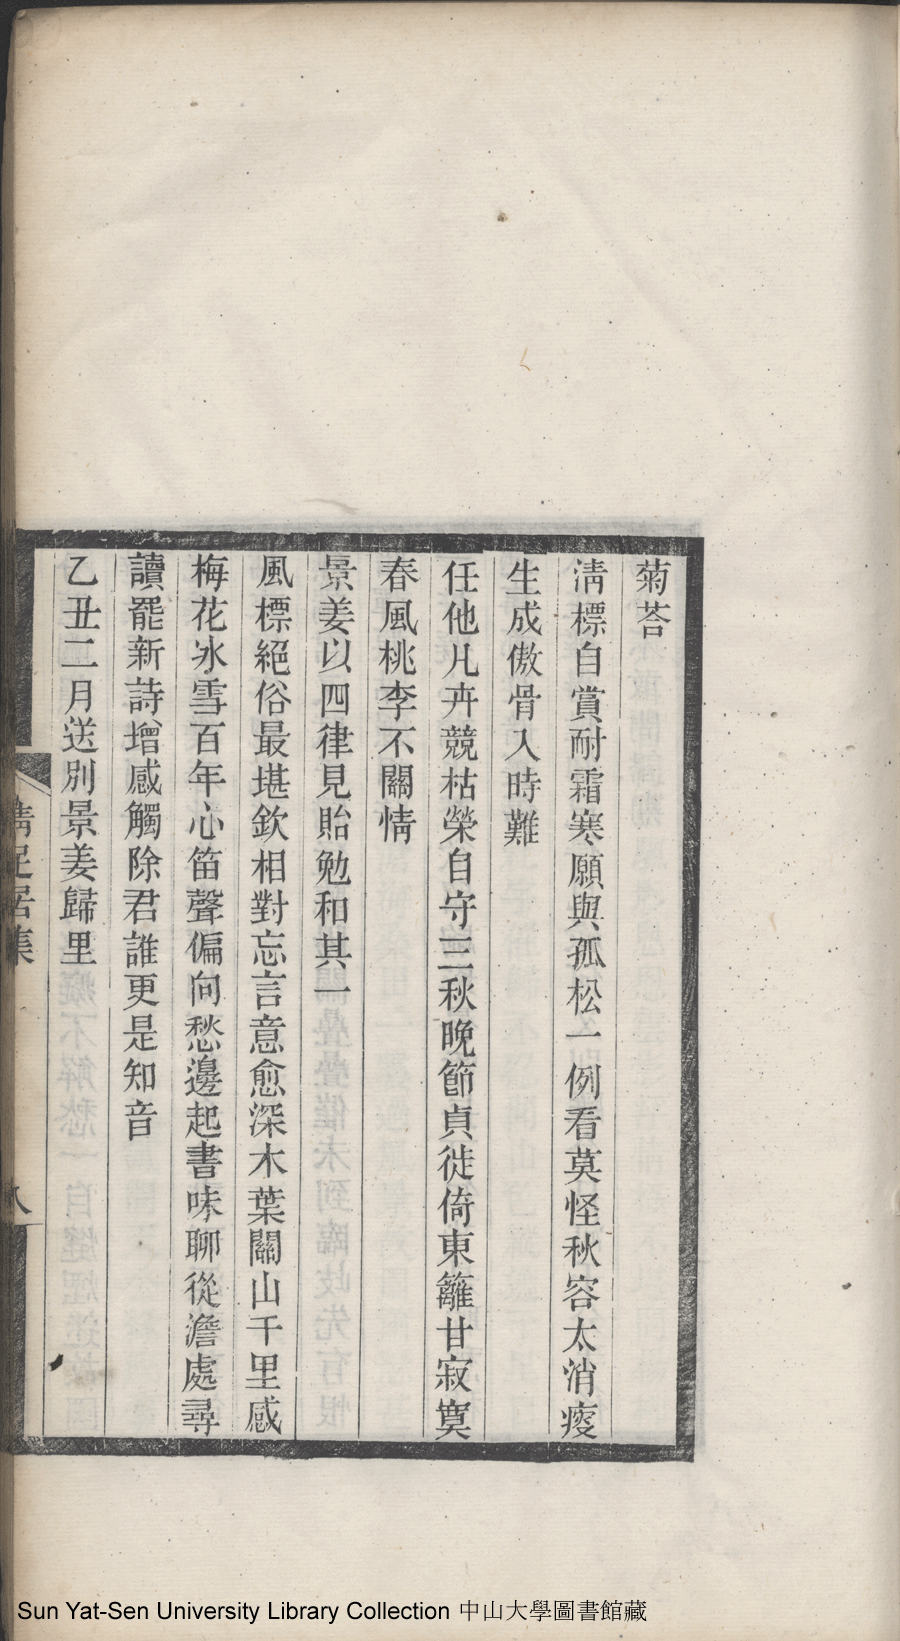 菊荅
淸標自賞耐霜寒願與孤松一例看莫怪秋容太消瘦
生成傲骨入時難
任他凡卉競枯榮自守三秋晚節貞徙倚東籬甘寂寞
春風桃李不關情
景姜以四律見貽勉和其一
風標絕俗最堪欽相對忘言意愈深木葉關山千里感
梅花冰雪百年心笛聲偏向愁邊起書味聊從澹處尋
讀罷新詩增感觸除君誰更是知音
乙丑二月送別景姜歸里
居集
八
Sun Yat-Sen University Library Collection 中山大學圖書館藏